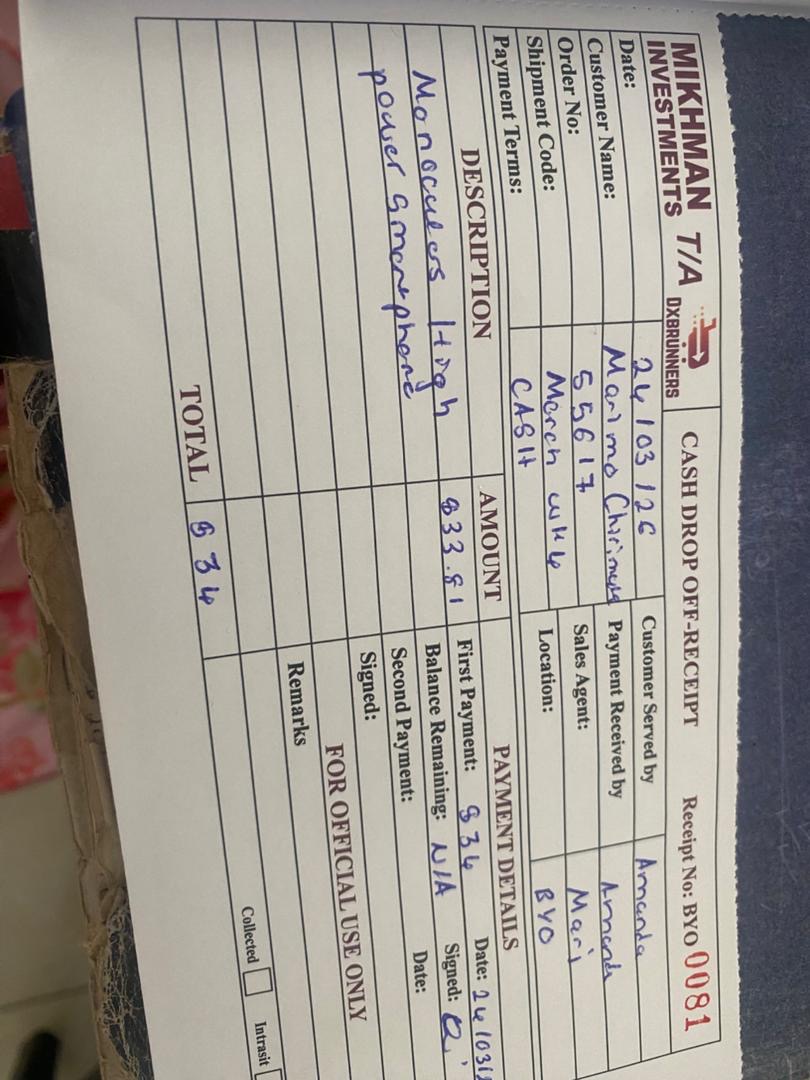 MIKHMAN T/A DXBRUNNERS
INVESTMENTS
CASH DROP OFF-RECEIPT Receipt No: BYO 0081
Date: 24/03/26 Customer Served by Amanda
Customer Name: Marimo Payment Received by Amanda
Order No: 55617 Sales Agent: Mari
Shipment Code: March WK4 Location: BYO
Payment Terms: CASH
DESCRIPTION AMOUNT PAYMENT DETAILS
Monoculars High $33.81 First Payment: $34 Date: 24/03/
power smartphone Balance Remaining: N/A Signed:
Second Payment: Date:
Signed:
FOR OFFICIAL USE ONLY
Remarks
TOTAL $34
Collected Intrasit